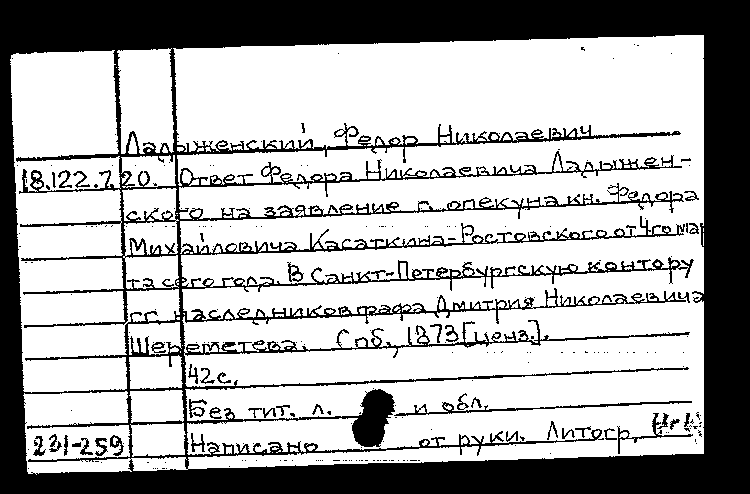 Ладыженский, Федор Николаевич
18.122.7.20. Ответ Федора Николаевича Ладыжен-
ского на заявление г. опекуна кн. Федора
Михайловича Касаткина-Ростовского от 4го мар
та сего года. В Санкт-Петербургскую контору
гг. наследников графа Дмитрия Николаевича
Шереметева. Спб., 1873 [ценз.].
42с.
Без тит. л. и обл.
231-259 Написано от руки. Литогр.